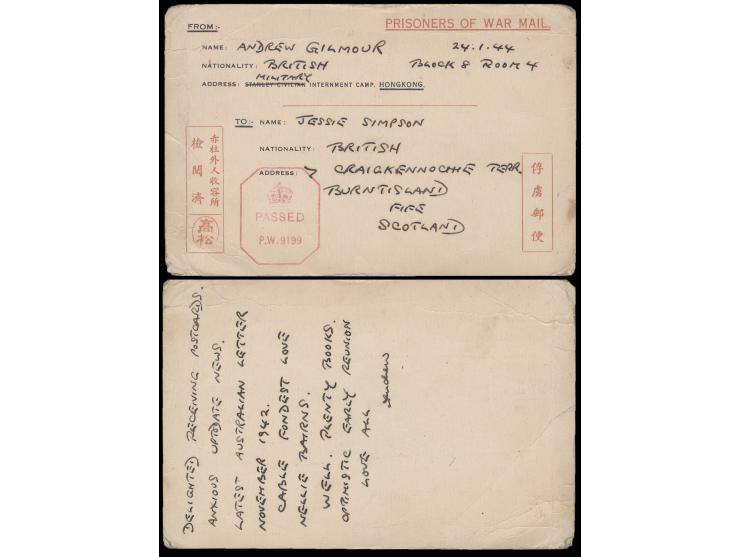 PRISONERS OF WAR MAIL.
FROM:-
NAME: ANDREW GILMOUR 24.1.44
NATIONALITY: BRITISH BLOCK 8 ROOM 4
MILITARY
ADDRESS: STANLEY CIVILIAN INTERNMENT CAMP, HONGKONG.
TO:- NAME: JESSIE SIMPSON
NATIONALITY: BRITISH
ADDRESS: 7 CRAIGKENNOCHIE TERR
BURNTISLAND
FIFE
SCOTLAND
赤柱外人收容所
檢閲濟
高松
PASSED
P.W. 9199
俘虜郵便
DELIGHTED RECEIVING POSTCARDS.
ANXIOUS UPTODATE NEWS.
LATEST AUSTRALIAN LETTER
NOVEMBER 1942.
CABLE FONDEST LOVE
NELLIE BAIRNS.
WELL. PLENTY BOOKS.
OPTIMISTIC EARLY REUNION
LOVE ALL
Andrew